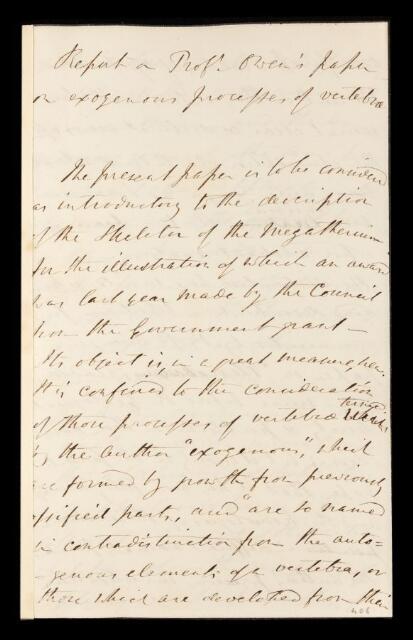 Report on Prof. Owen's paper
on exogenous processes of vertebræ
The present paper is to be considered
as introductory to the description
of the Skeleton of the Megatherium
for the illustration of which an award
was last year made by the Council
from the Government grant —
Its object is, in a great measure, new.
It is confined to the consideration
of those processes of vertebræ termed
by the author "exogenous," which
are formed by growth from previously
ossified parts, and are so named
in contradistinction from the auto=
=genous elements of a vertebra, or
those which are developed from their
406